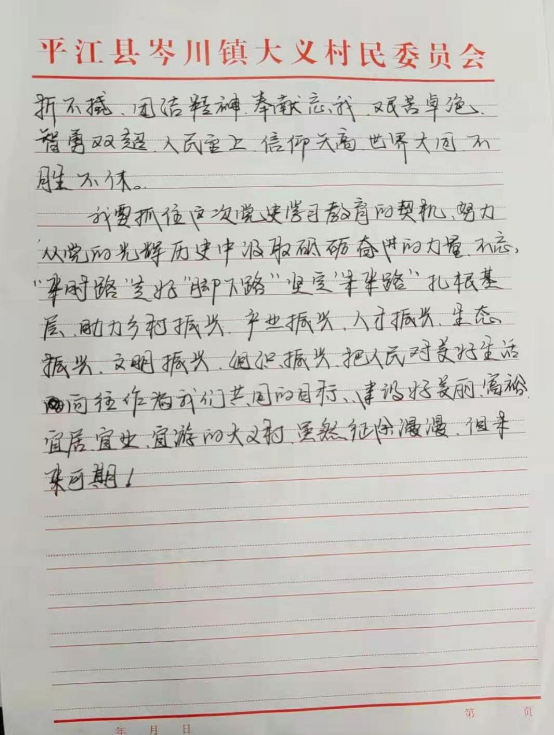 平江县岑川镇大义村民委员会
折不挠、团结精神、奉献忘我、艰苦卓绝、
智勇双超、人民至上、信仰天高、世界大同、不
胜不休。
我要抓住这次党史学习教育的契机、努力
从党的光辉历史中汲取砥砺奋进的力量、不忘
“来时路”走好“脚下路”坚定“未来路”扎根基
层、助力乡村振兴、产业振兴、人才振兴、生态
振兴、文明振兴、组织振兴、把人民对美好生活
向往作为我们共同的目标、建设好美丽、富裕
宜居、宜业、宜游的大义村、虽然征途漫漫、但未
来可期！
年 月 日
第 页